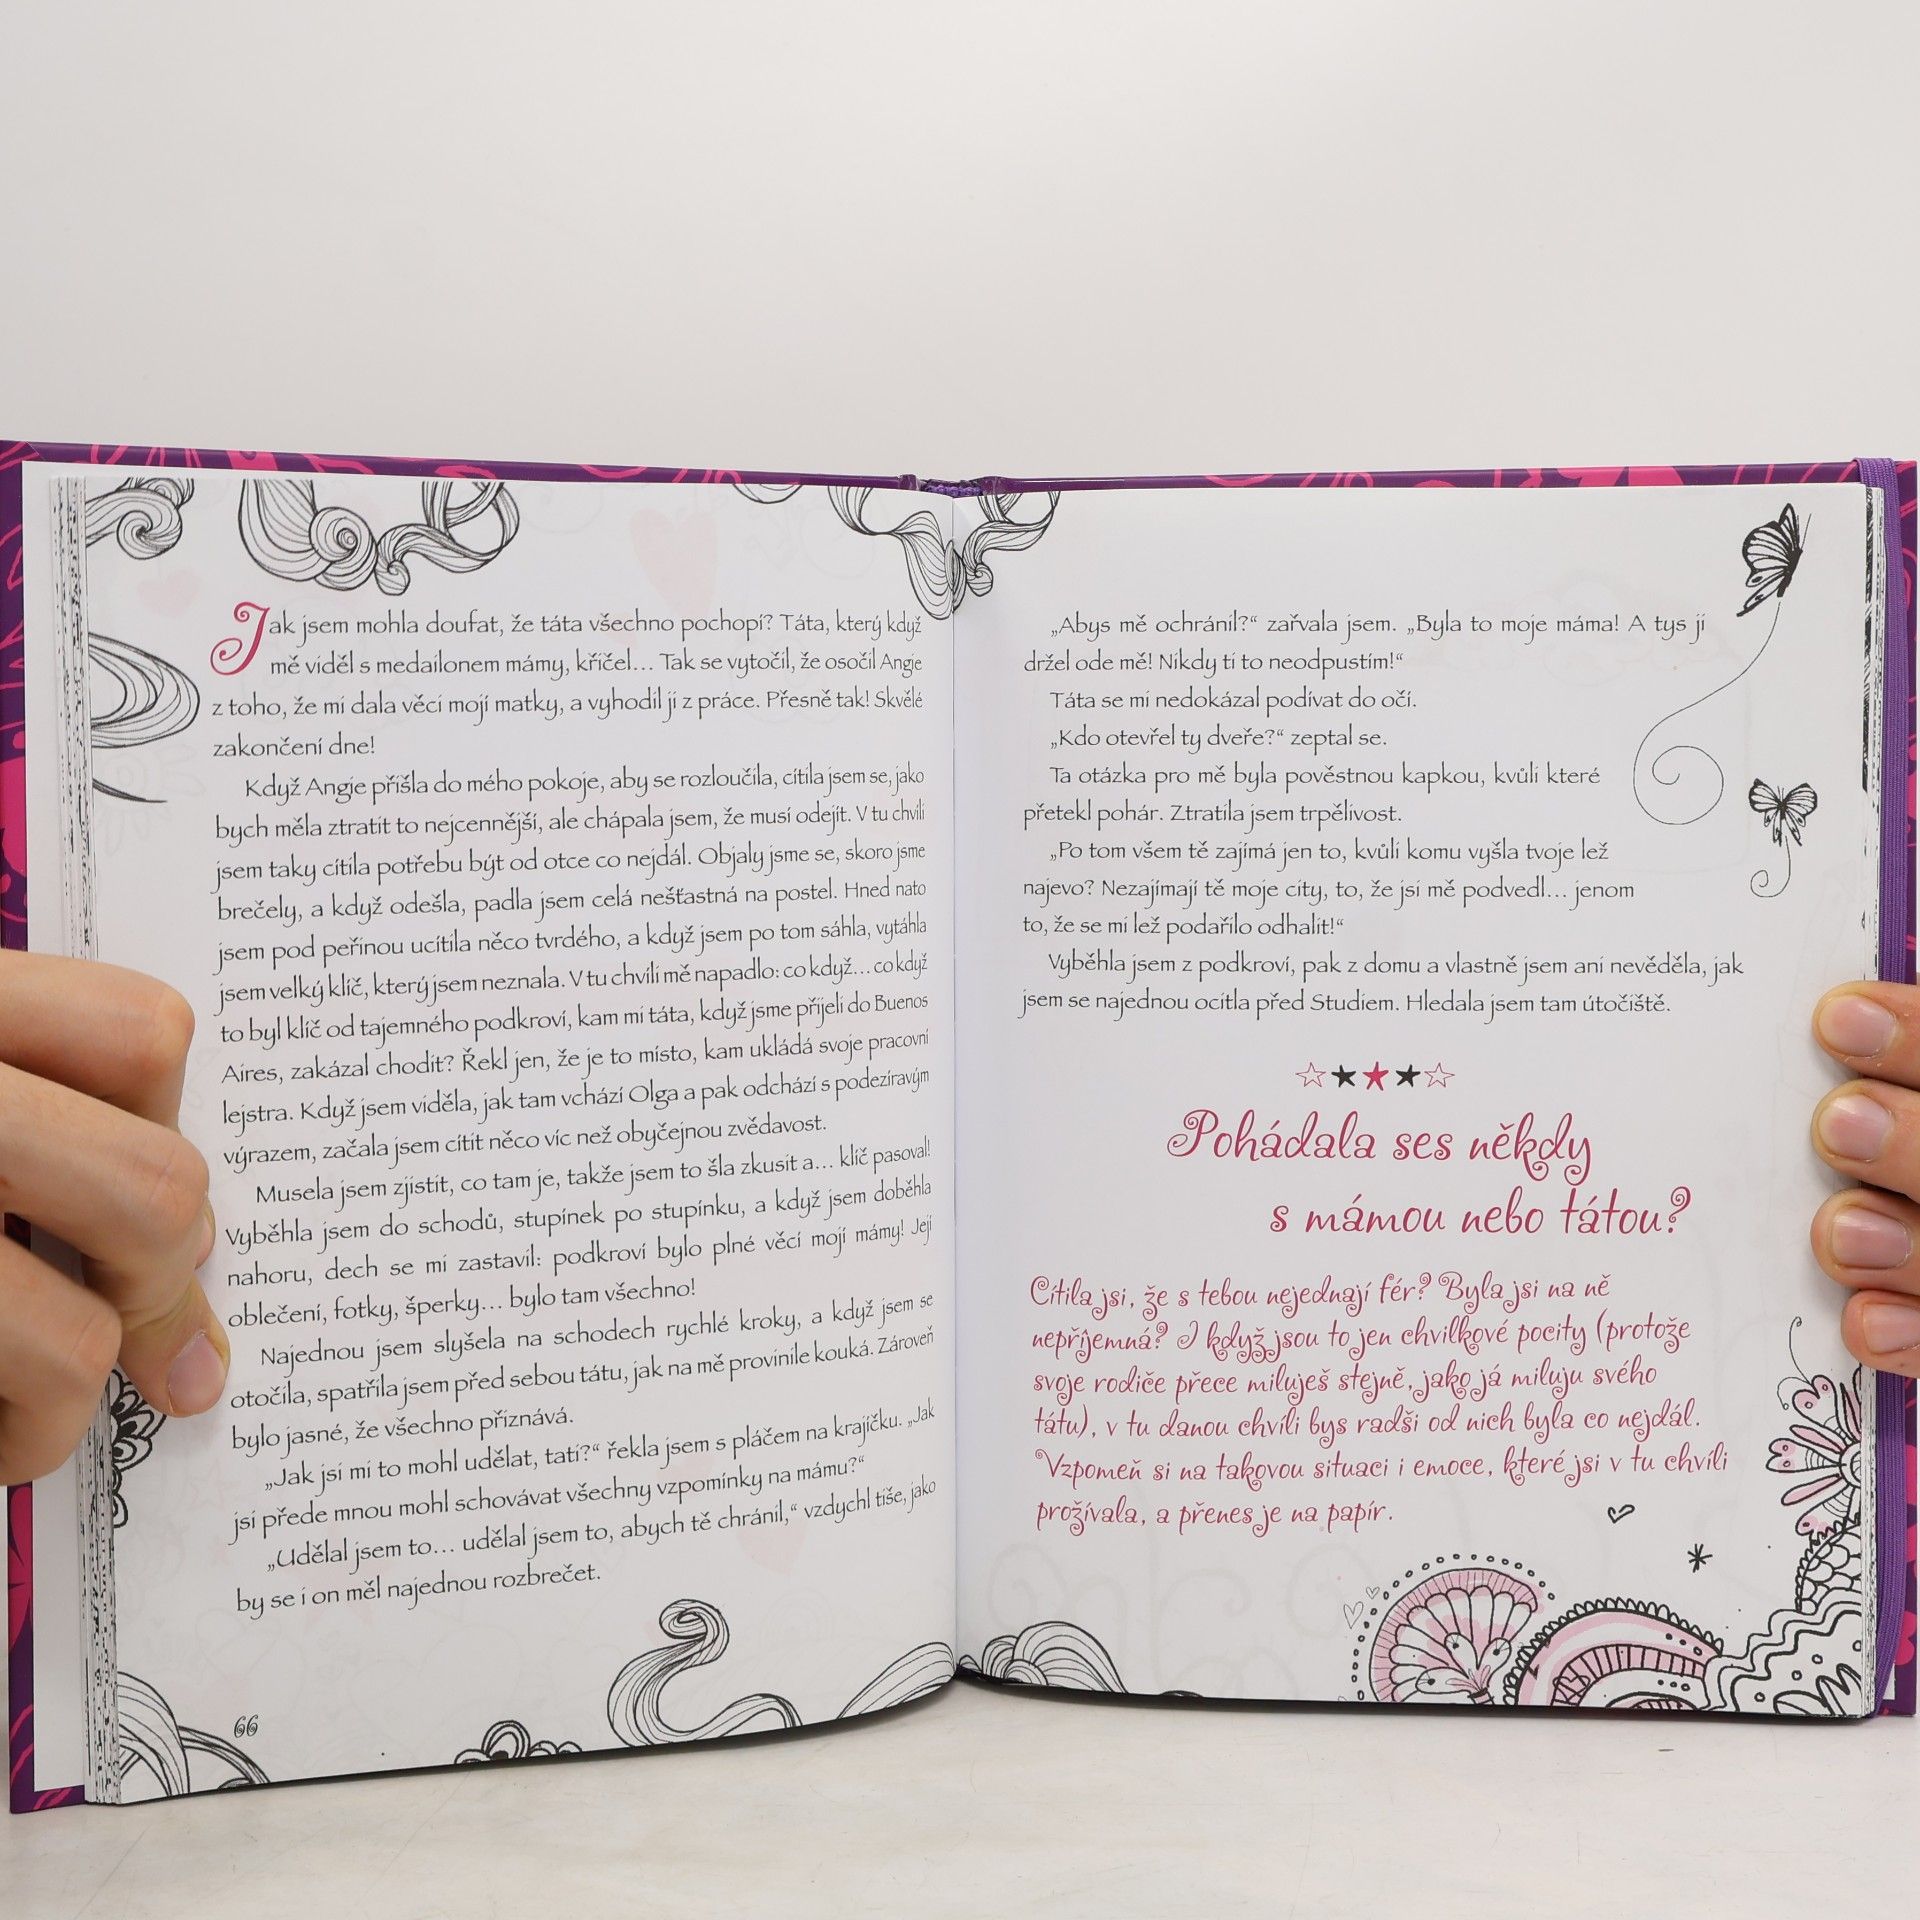 Jak jsem mohla doufat, že táta všechno pochopí? Táta, který když
mě viděl s medailonem mámy, křičel... Tak se vytočil, že osočil Angie
z toho, že mi dala věci mojí matky, a vyhodil ji z práce. Přesně tak! Skvělé
zakončení dne!
Když Angie přišla do mého pokoje, aby se rozloučila, cítila jsem se, jako
bych měla ztratit to nejcennější, ale chápala jsem, že musí odejít. V tu chvíli
jsem taky cítila potřebu být od otce co nejdál. Objaly jsme se, skoro jsme
brečely, a když odešla, padla jsem celá nešťastná na postel. Hned nato
jsem pod peřinou ucítila něco tvrdého, a když jsem po tom sáhla, vytáhla
jsem velký klíč, který jsem neznala. V tu chvíli mě napadlo: co když... co když
to byl klíč od tajemného podkroví, kam mi táta, když jsme přijeli do Buenos
Aires, zakázal chodit? Řekl jen, že je to místo, kam ukládá svoje pracovní
lejstra. Když jsem viděla, jak tam vchází Olga a pak odchází s podezíravým
výrazem, začala jsem cítit něco víc než obyčejnou zvědavost.
Musela jsem zjistit, co tam je, takže jsem to šla zkusit a... klíč pasoval!
Vyběhla jsem do schodů, stupínek po stupínku, a když jsem doběhla
nahoru, dech se mi zastavil: podkroví bylo plné věcí mojí mámy! Její
oblečení, fotky, šperky... bylo tam všechno!
Najednou jsem slyšela na schodech rychlé kroky, a když jsem se
otočila, spatřila jsem před sebou tátu, jak na mě provinile kouká. Zároveň
bylo jasné, že všechno přiznává.
„Jak jsi mi to mohl udělat, tati?“ řekla jsem s pláčem na krajíčku. „Jak
jsi přede mnou mohl schovávat všechny vzpomínky na mámu?“
„Udělal jsem to... udělal jsem to, abych tě chránil,“ vzdychl tiše, jako
by se i on měl najednou rozbrečet.
66
„Abys mě ochránil?“ zařvala jsem. „Byla to moje máma! A tys ji
držel ode mě! Nikdy ti to neodpustím!“
Táta se mi nedokázal podívat do očí.
„Kdo otevřel ty dveře?“ zeptal se.
Ta otázka pro mě byla pověstnou kapkou, kvůli které
přetekl pohár. Ztratila jsem trpělivost.
„Po tom všem tě zajímá jen to, kvůli komu vyšla tvoje lež
najevo? Nezajímají tě moje city, to, že jsi mě podvedl... jenom
to, že se mi lež podařilo odhalit!“
Vyběhla jsem z podkroví, pak z domu a vlastně jsem ani nevěděla, jak
jsem se najednou ocitla před Studiem. Hledala jsem tam útočiště.
Pohádala ses někdy
s mámou nebo tátou?
Cítila jsi, že s tebou nejednají fér? Byla jsi na ně
nepříjemná? I když jsou to jen chvilkové pocity (protože
svoje rodiče přece miluješ stejně, jako já miluju svého
tátu), v tu danou chvíli bys radši od nich byla co nejdál.
Vzpomeň si na takovou situaci i emoce, které jsi v tu chvíli
prožívala, a přenes je na papír.